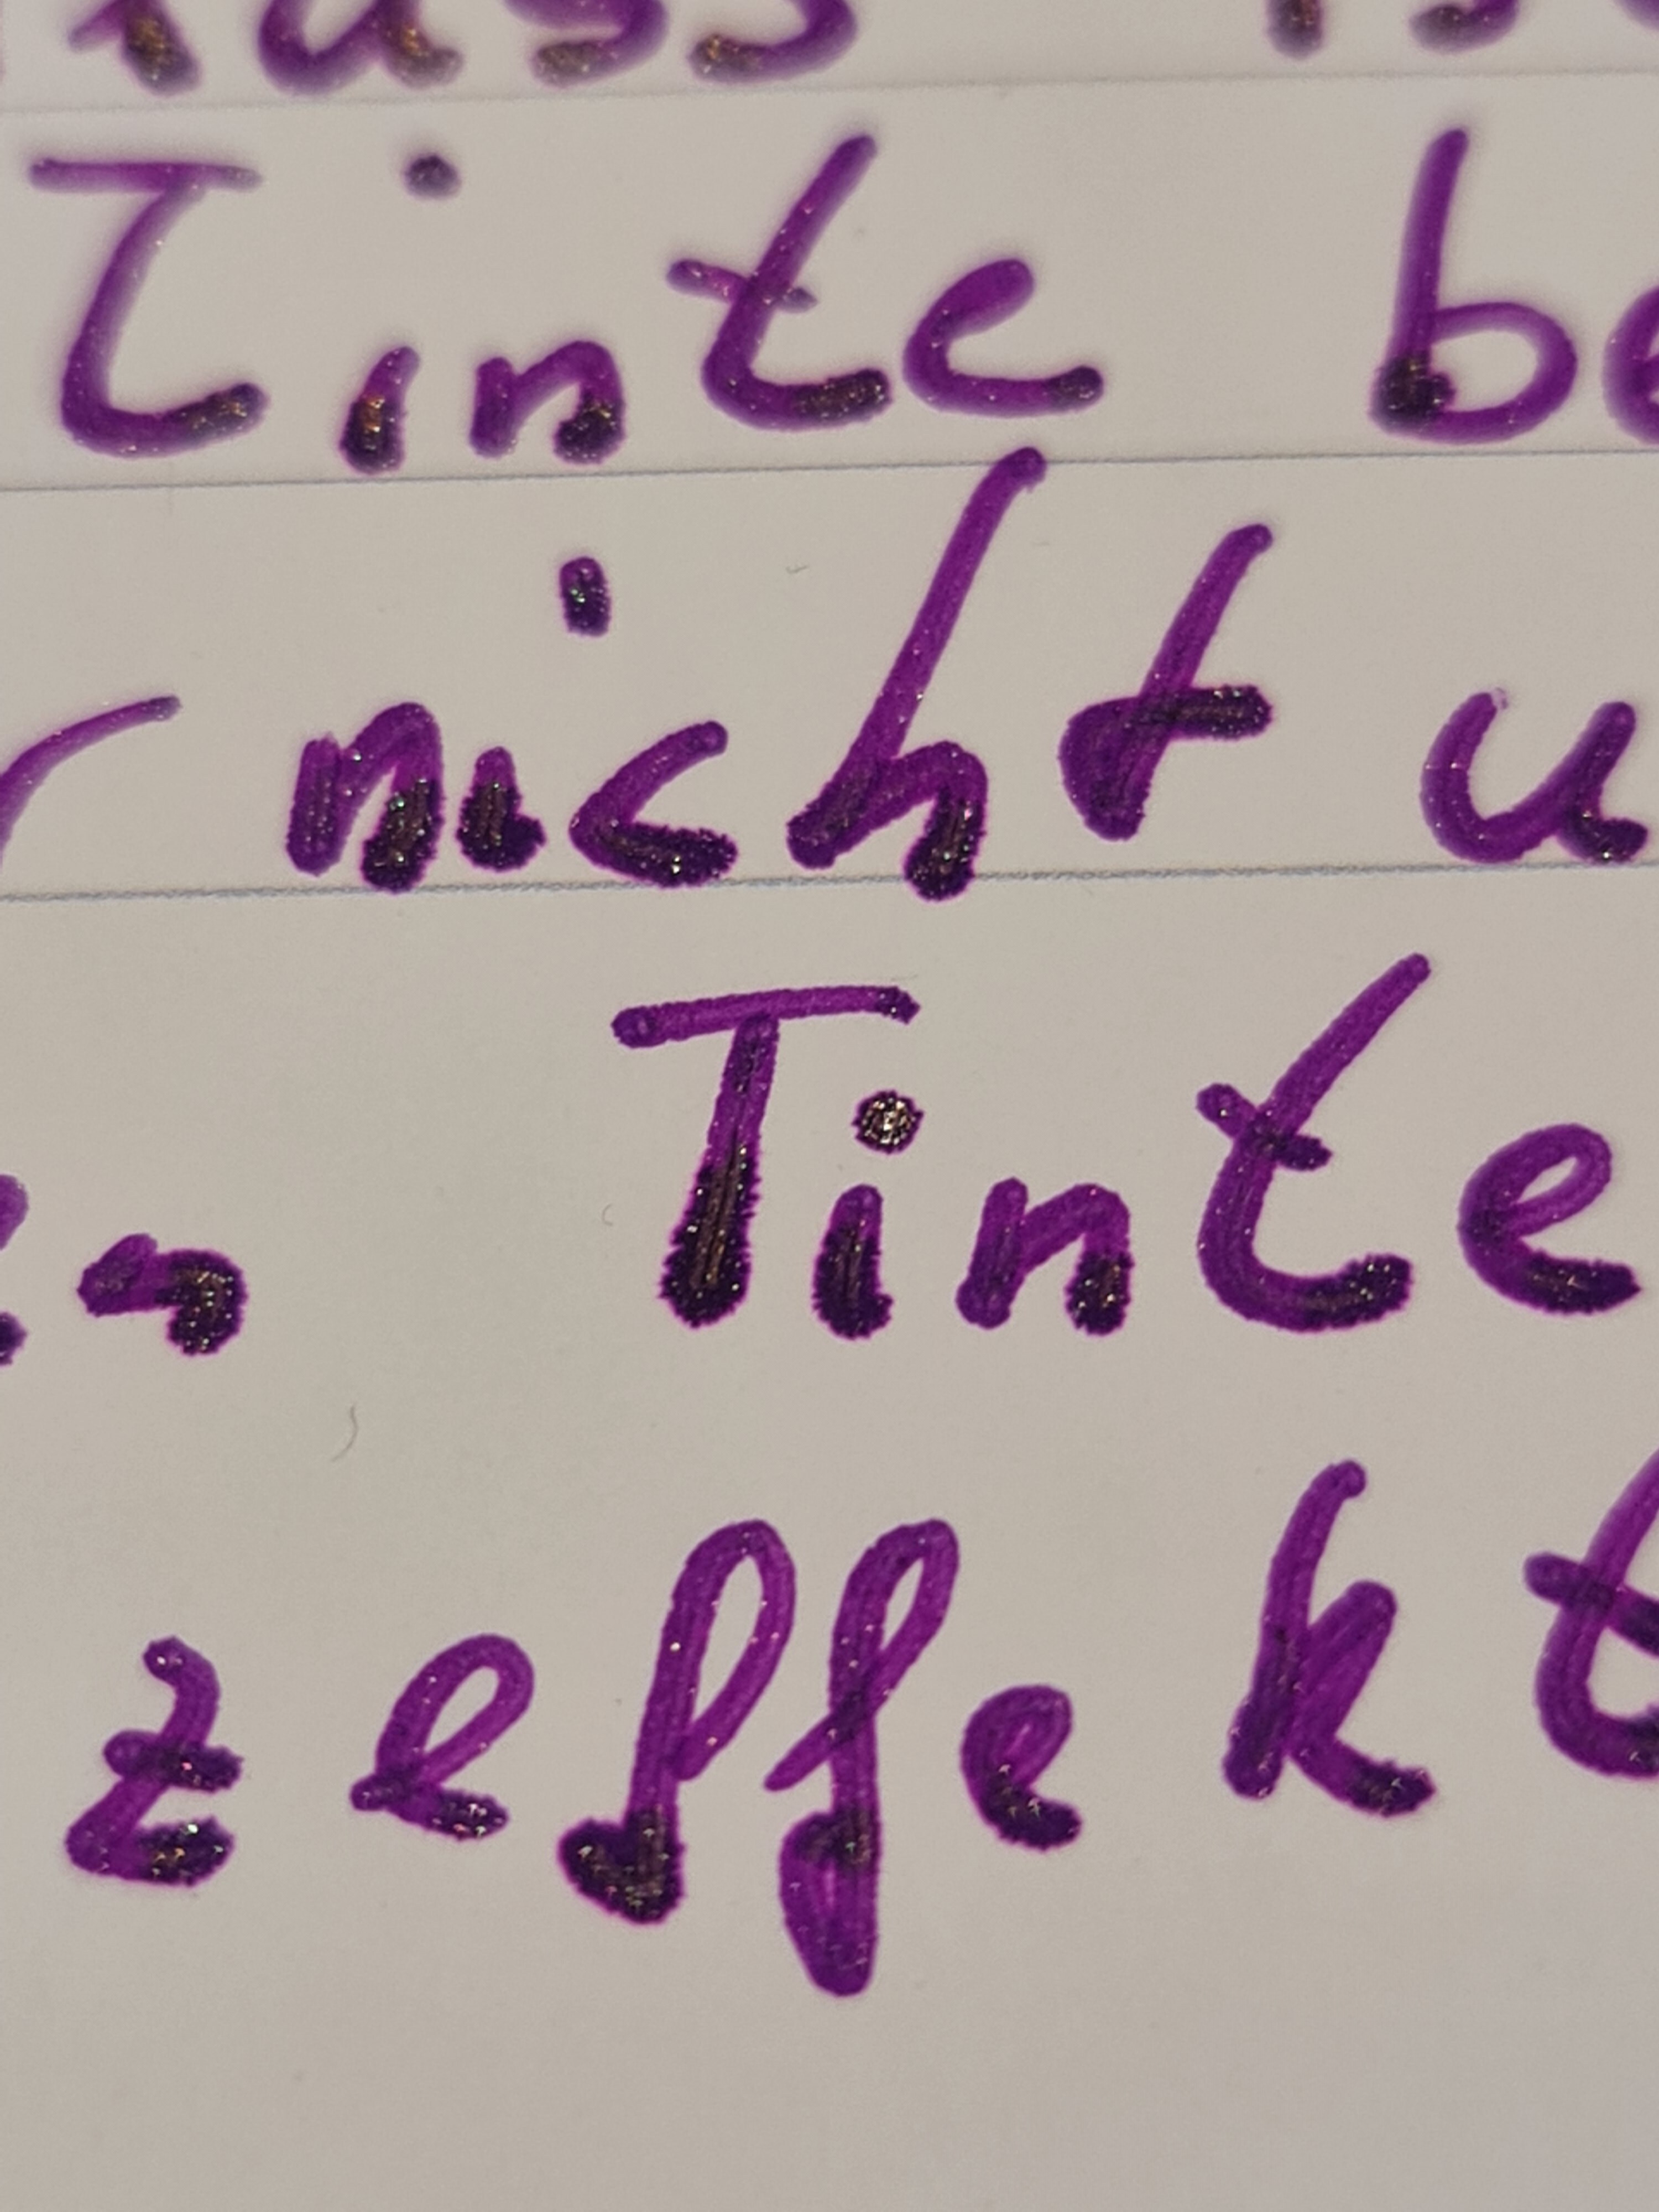 Tinte be
nicht u
Tinte
zeffekt